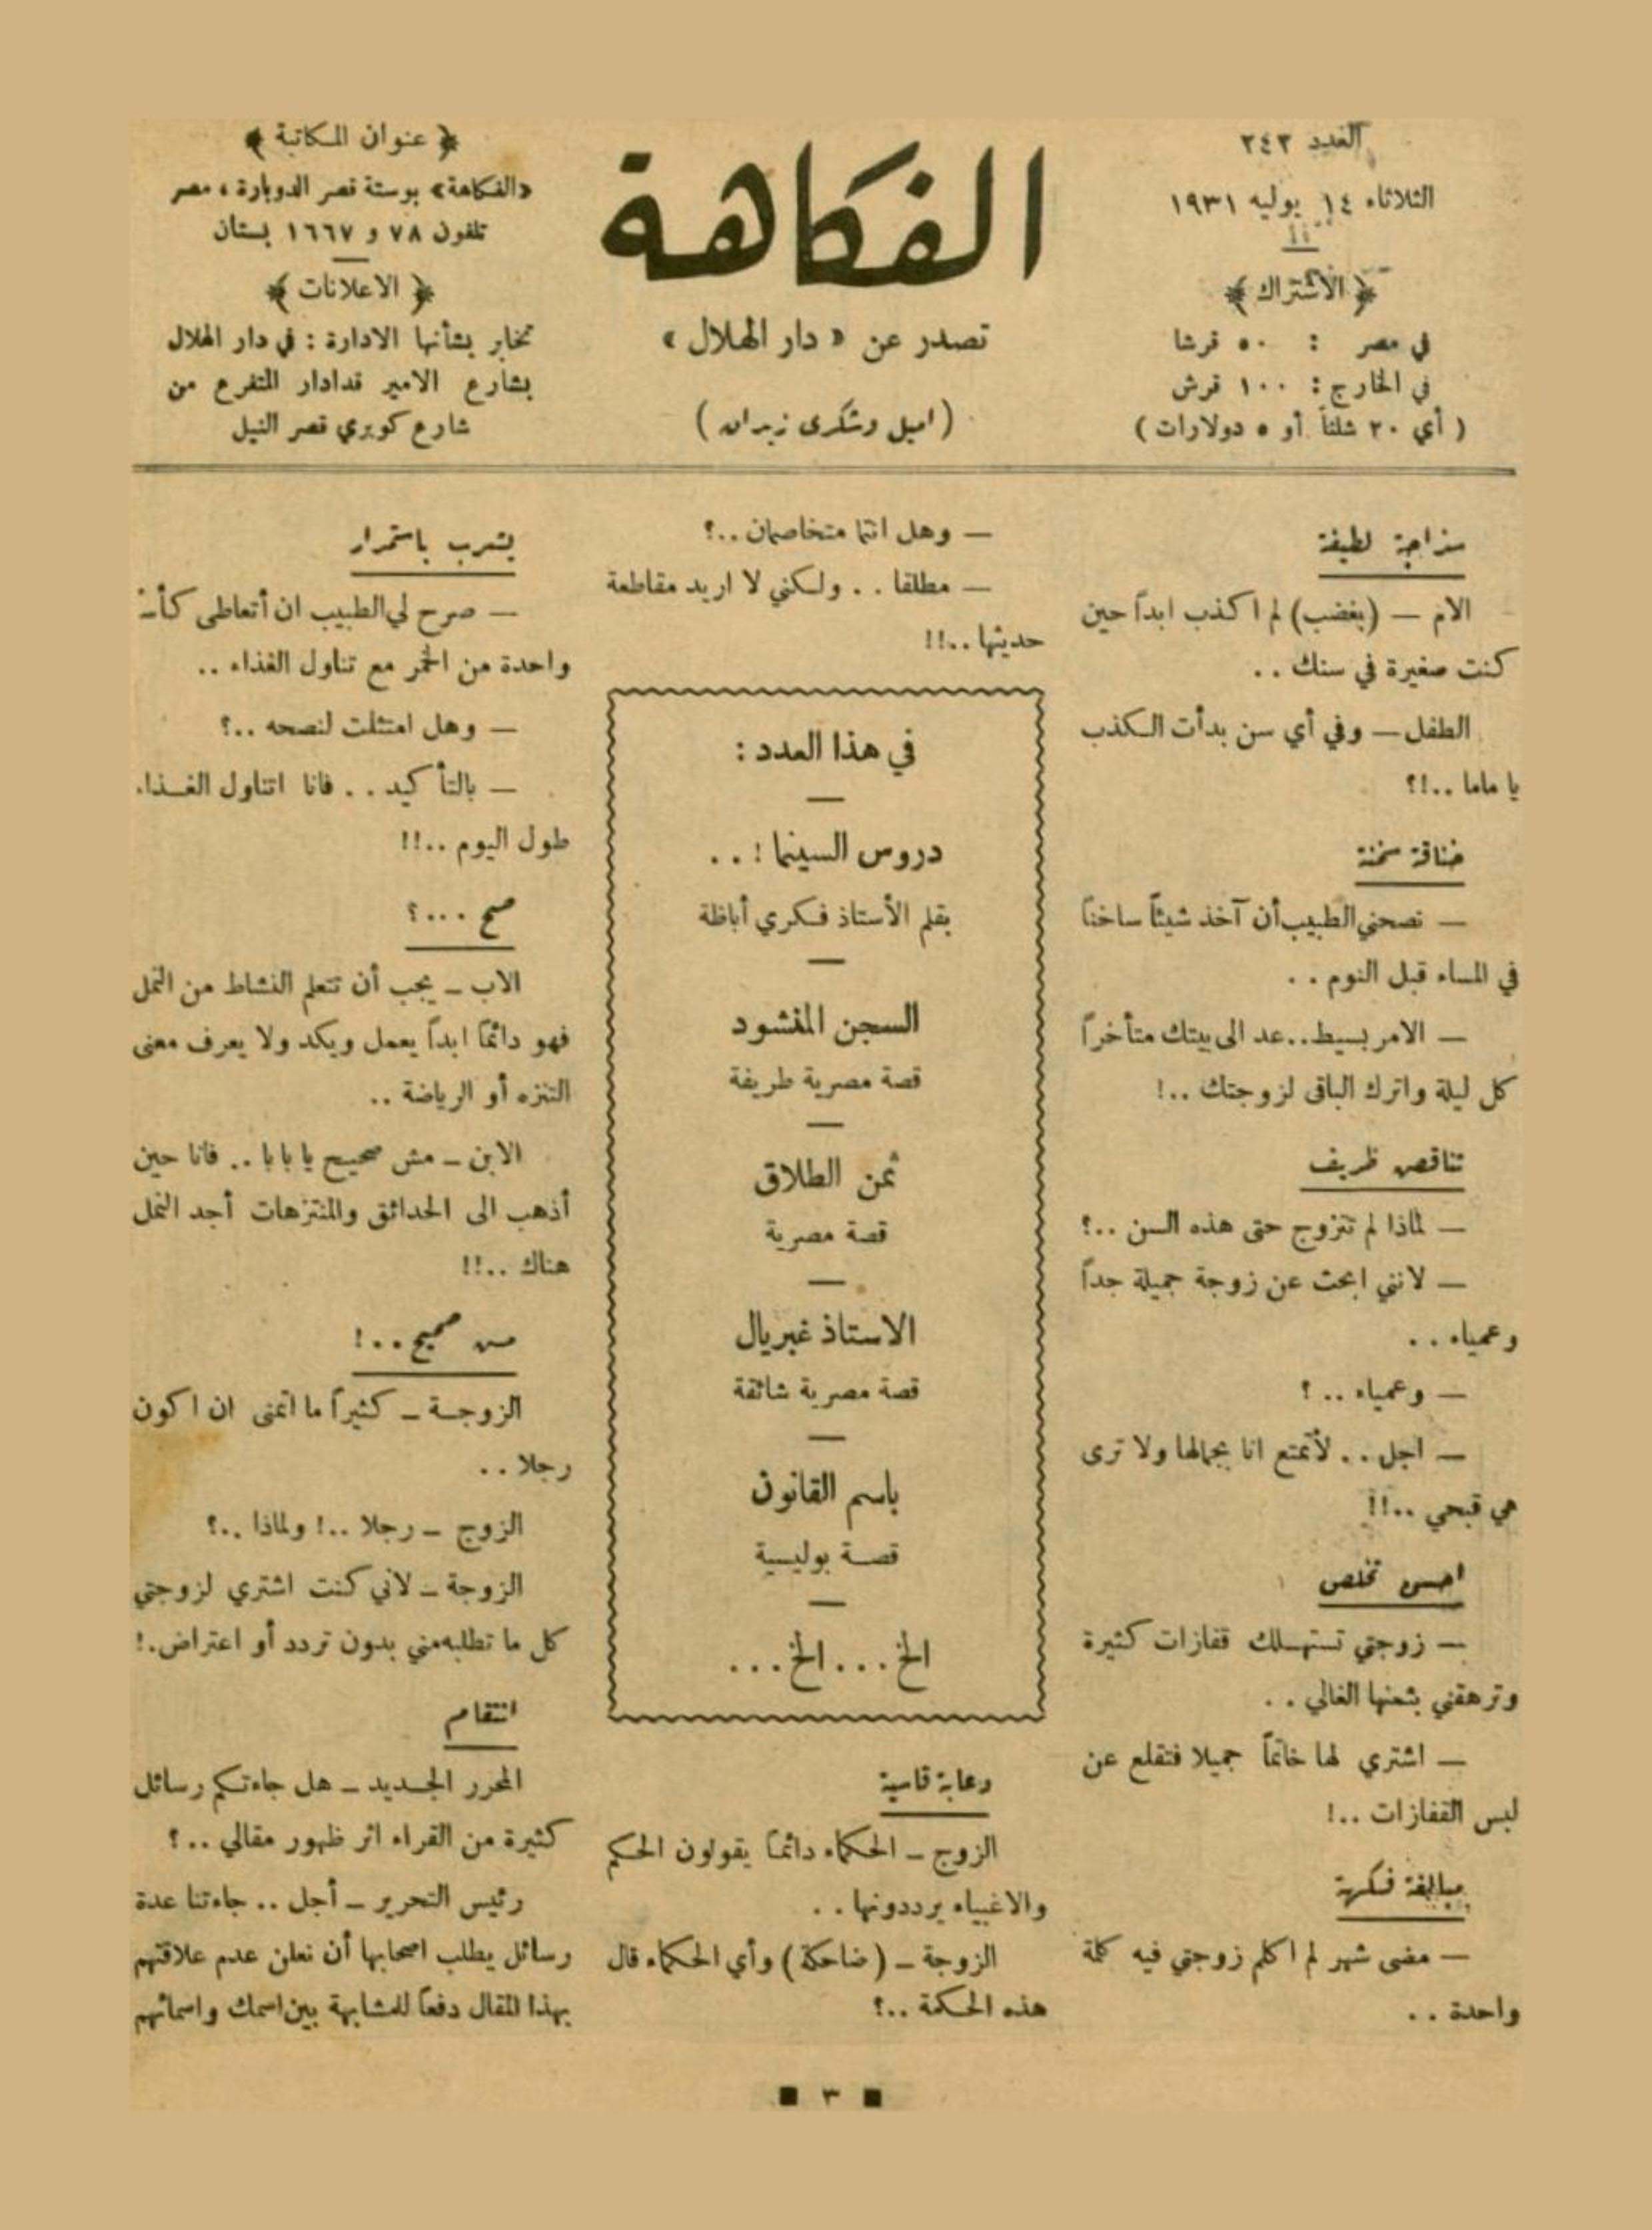 العدد ٢٤٢
الثلاثاء ١٤ يوليه ١٩٣١
﴿ الاشتراك ﴾
في مصر : ٥٠ قرشا
في الخارج : ١٠٠ قرش
( أي ٢٠ شلناً أو ٥ دولارات )
الفكاهة
تصدر عن « دار الهلال »
( اميل وشكرى زيدان )
﴿ عنوان المكاتبة ﴾
«الفكاهة» بوستة قصر الدوبارة ، مصر
تلفون ٧٨ و ١٦٦٧ بستان
﴿ الاعلانات ﴾
تخابر بشأنها الادارة : في دار الهلال
بشارع الامير قدادار المتفرع من
شارع كوبري قصر النيل
سذاجة لطيفة
الام — (بغضب) لم اكذب ابداً حين
كنت صغيرة في سنك . .
الطفل — وفي أي سن بدأت الكذب
يا ماما ..!؟
خناقة سخنة
— نصحني الطبيب أن آخذ شيئاً ساخناً
في المساء قبل النوم . .
— الامر بسيط..عد الى بيتك متأخراً
كل ليلة واترك الباقى لزوجتك ..!
تناقص ظريف
— لماذا لم تتزوج حتى هذه السن ..؟
— لانني ابحث عن زوجة جميلة جداً
وعمياء . .
— وعمياء .. ؟
— اجل . . لأتمتع انا بجمالها ولا ترى
هي قبحي ..!!
احسن تخلص
— زوجتي تستهلك قفازات كثيرة
وترهقني بثمنها الغالي . .
— اشتري لها خاتماً جميلا فتقلع عن
لبس القفازات ..!
مبالغة فكهة
— مضى شهر لم اكلم زوجتي فيه كلمة
واحدة . .
— وهل انتما متخاصمان ..؟
— مطلقا . . ولكني لا اريد مقاطعة
حديثها ..!!
في هذا العدد :
دروس السينما ! . .
بقلم الأستاذ فكري أباظة
السجن المنشود
قصة مصرية طريفة
ثمن الطلاق
قصة مصرية
الاستاذ غبريال
قصة مصرية شائقة
باسم القانون
قصة بوليسية
الخ . . . الخ . . .
دعابة قاسية
الزوج — الحكماء دائماً يقولون الحكم
والاغبياء يرددونها . .
الزوجة — (ضاحكة) وأي الحكماء قال
هذه الحكمة ..؟
يشرب باستمرار
— صرح لي الطبيب ان أتعاطى كأسـ
واحدة من الخمر مع تناول الغذاء ..
— وهل امتثلت لنصحه ..؟
— بالتأكيد . . فانا اتناول الغذاء
طول اليوم ..!!
صح ...؟
الاب — يجب أن تتعلم النشاط من النمل
فهو دائماً ابداً يعمل ويكد ولا يعرف معنى
التنزه أو الرياضة ..
الابن — مش صحيح يا بابا .. فانا حين
أذهب الى الحدائق والمنتزهات أجد النمل
هناك ..!!
صحيح ..!
الزوجة — كثيراً ما اتمنى ان اكون
رجلا . .
الزوج — رجلا ..! ولماذا ..؟
الزوجة — لاني كنت اشتري لزوجتي
كل ما تطلبه مني بدون تردد أو اعتراض.!
انتقام
المحرر الجديد — هل جاءتكم رسائل
كثيرة من القراء اثر ظهور مقالي .. ؟
رئيس التحرير — أجل .. جاءتنا عدة
رسائل يطلب اصحابها أن نعلن عدم علاقتهم
بهذا المقال دفعاً للمشابهة بين اسمك واسمائهم
٣